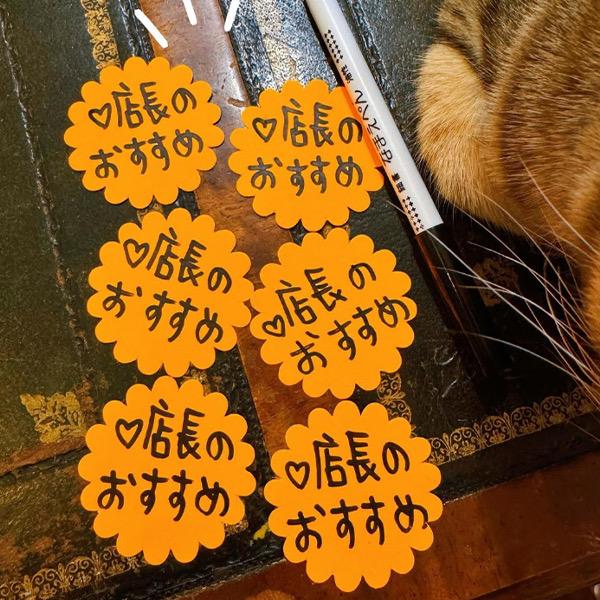 ♡店長の
おすすめ
♡店長の
おすすめ
なまえペん
♡店長の
おすすめ
♡店長の
おすすめ
♡店長の
おすすめ
♡店長の
おすすめ